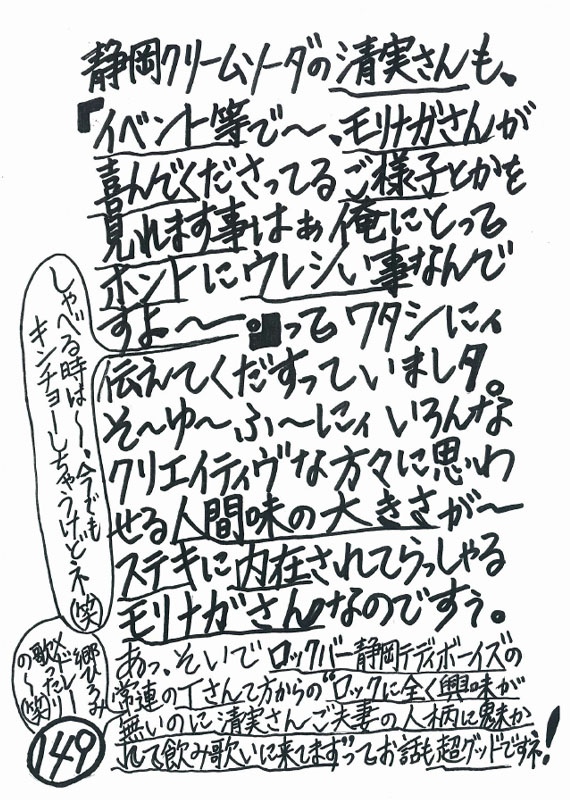 静岡クリームソーダの清実さんも、
「イベント等で〜、モリナガさんが
喜んでくださってるご様子とかを
見れます事はぁ俺にとって
ホントにウレシい事なんで
すよ〜──。」ってワタシにィ
伝えてくだすっていましタ。
そ〜ゆ〜ふ〜にィいろんな
クリエイティヴな方々に思わ
せる人間味の大きさが〜
ステキに内在されてらっしゃる
モリナガさんなのですぅ。
しゃべる時は〜、今でも
キンチョーしちゃうけどネ(笑)
あっ、そいでロックバー静岡テディボーイズの
常連のTさん方からの"ロックに全く興味が
無いのに清実さんご夫妻の人柄に魅か
れて飲み歌いに来てます"ってお話も超グッドですネ!
郷ひろみ
メドレー
歌ったり
の〜(笑)
149